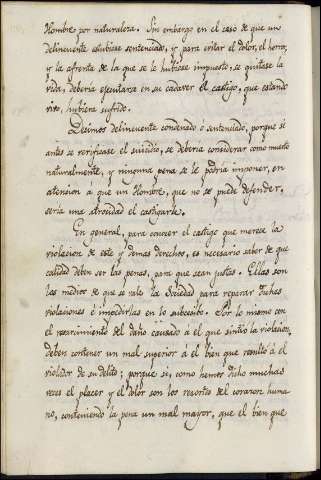 Hombre por naturaleza. Sin embargo en el caso de que un
delincuente estubiese sentenciado, y para evitar el dolor, el horror,
y la afrenta de la que se le hubiese impuesto, se quitase la
vida, deberia ejecutarse en su cadaver el castigo, que estando
vivo, hubiera sufrido.
Decimos delincuente condenado o sentenciado, porque si
antes se verificase el suicidio, se deberia considerar como muerto
naturalmente, y ninguna pena se le podria imponer, en
atension á que un Hombre, que no se puede defender,
seria una atrosidad el castigarle.
En general, para conocer el castigo que merece la
violacion de este y demas derechos, es necesario saber de que
calidad deben ser las penas, para que sean justas. Ellas son
los medios de que se vale la Sociedad para reparar dichas
violaciones é impedirlas en lo subcesibo. Por lo mismo con
el resarcimiento del daño causado á el que sintió la violacion,
deben contener un mal superior á el bien que resultó á el
violador de su delito; porque si, como hemos dicho muchas
veces el placer y el dolor son los resortes del corazon huma-
no, conteniendo la pena un mal mayor, que el bien que